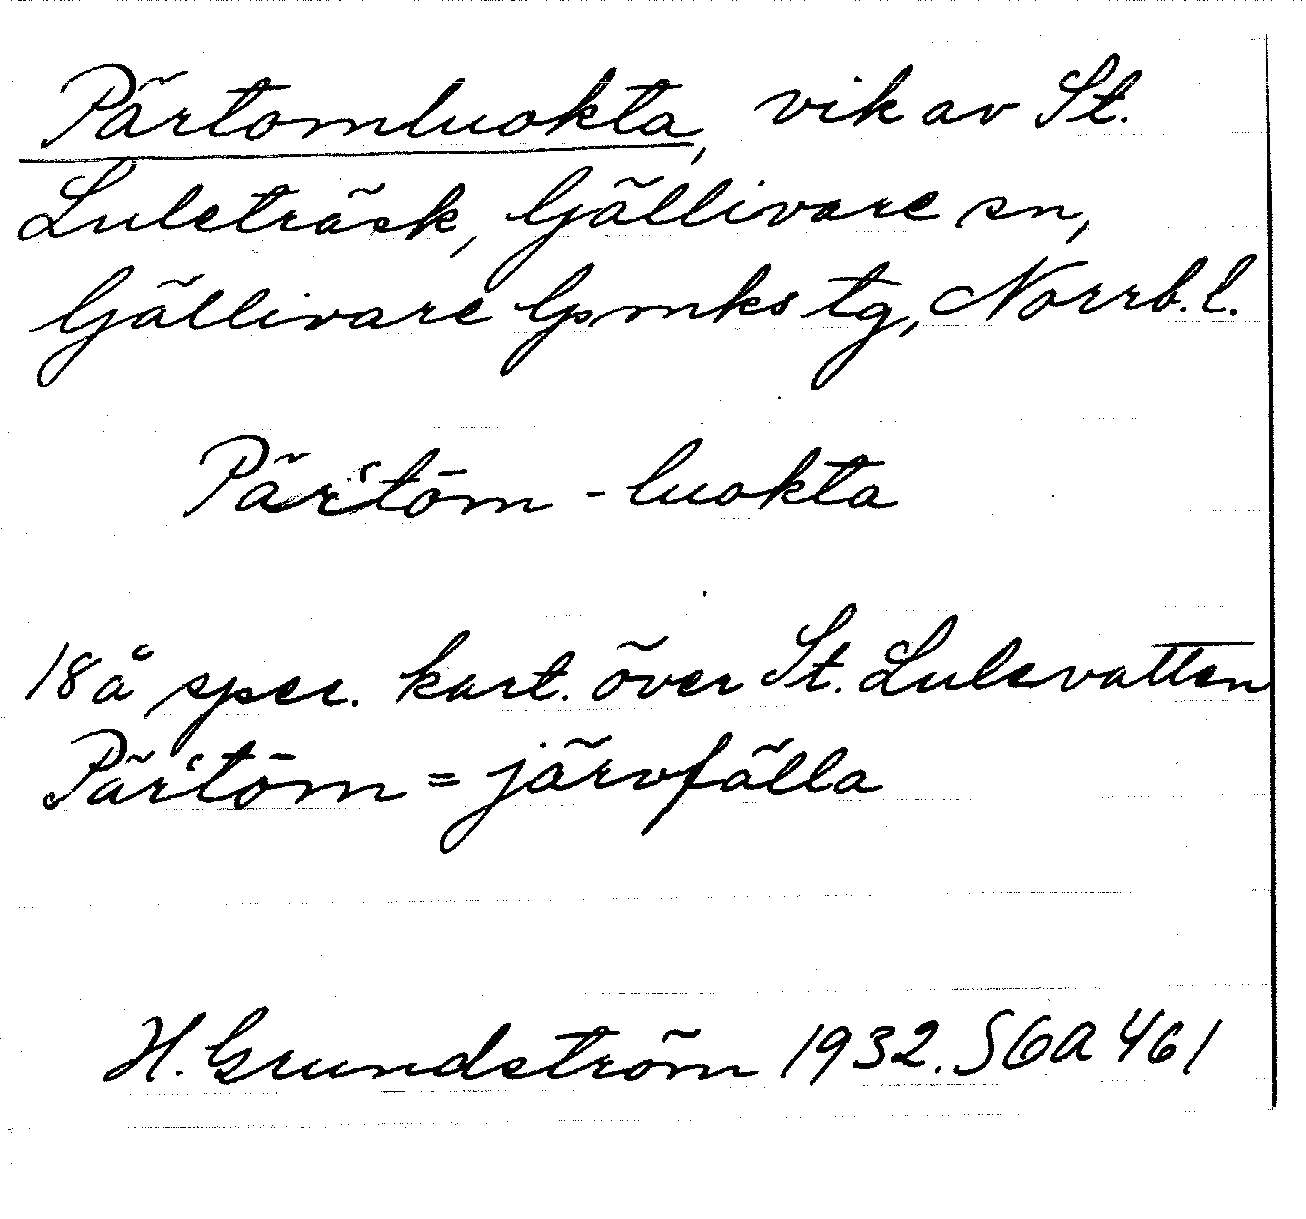 Pärtomluokta, vik av St.
Luleträsk, Gällivare sn,
Gällivare lpmks tg, Norrb. l.
Pär‘tōm - luokta
18 å spec. kart. över St. Lulevatten
Pär‘tōm = järvfälla
H. Grundström 1932. SGA 461